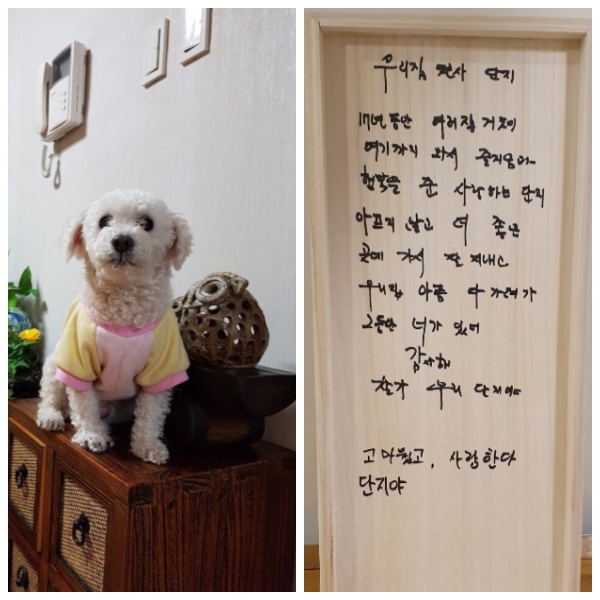 우리집 천사 단지
17년 동안 여러집 거쳐서
여기까지 와서 즐거움과
행복을 준 사랑하는 단지
아프지 않고 더 좋은
곳에 가서 잘 지내고
우리맘 아픔 다 가져가
그동안 너가 있어
감사해
잘가 우리 단지야
고마웠고, 사랑한다
단지야